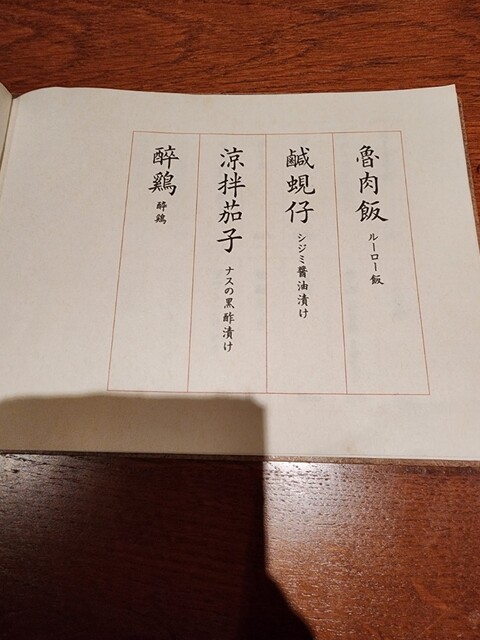 魯肉飯 ルーロー飯
鹹蜆仔 シジミ醤油漬け
涼拌茄子 ナスの黒酢漬け
醉鶏 酔鶏